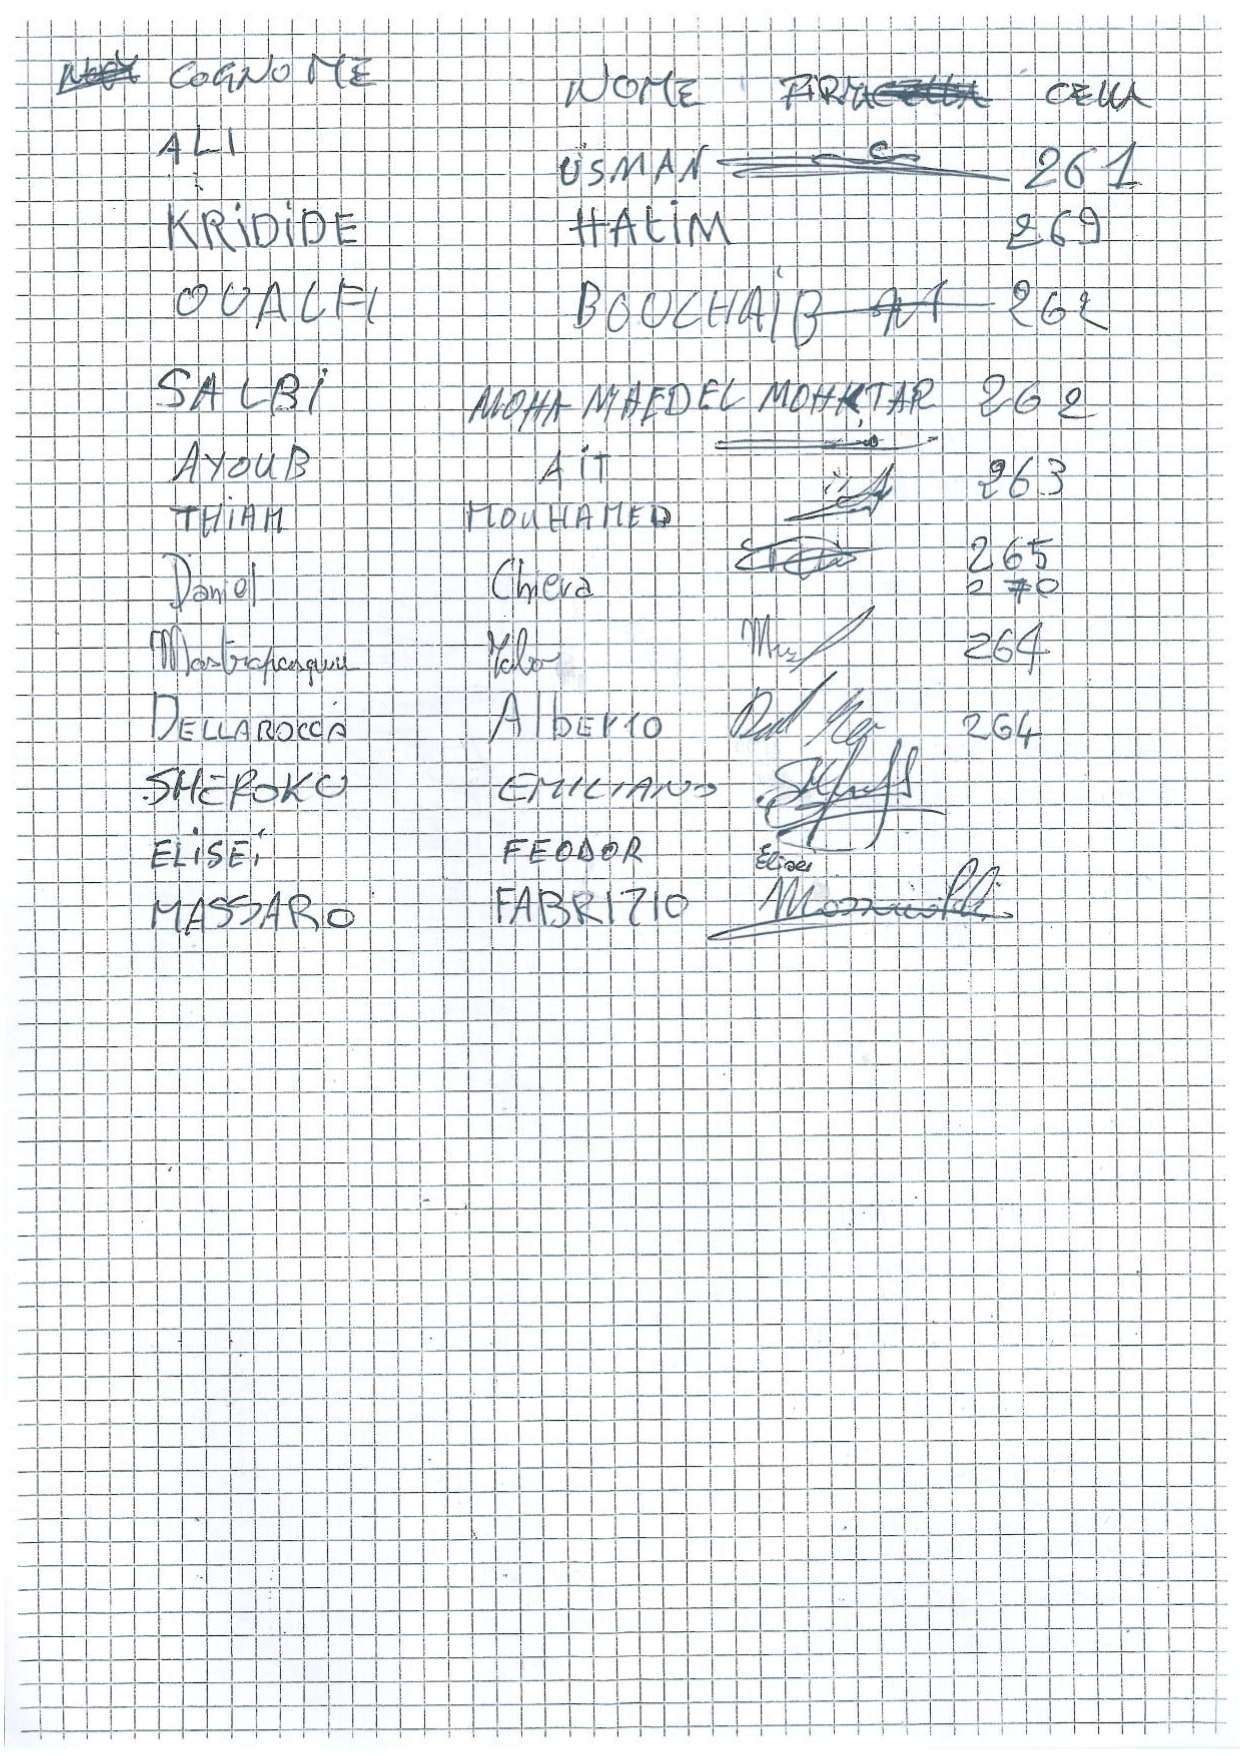 COGNOME NOME FIRMA CELLA
ALI USMAN 261
KRiDiDE HALiM 269
OUALFI BOUCHAiB 262
SALBi MOHAMAEDEL MOHKTAR 262
AYOUB AiT 263
THiAM MOUHAMED 265
Daniel Chiera 270
Mastrapasqua 264
DELLAROCCA AlbERTO 264
SHEROKU EMILIANO
ELiSEi FEODOR Elisei
MASSARO FABRIZIO